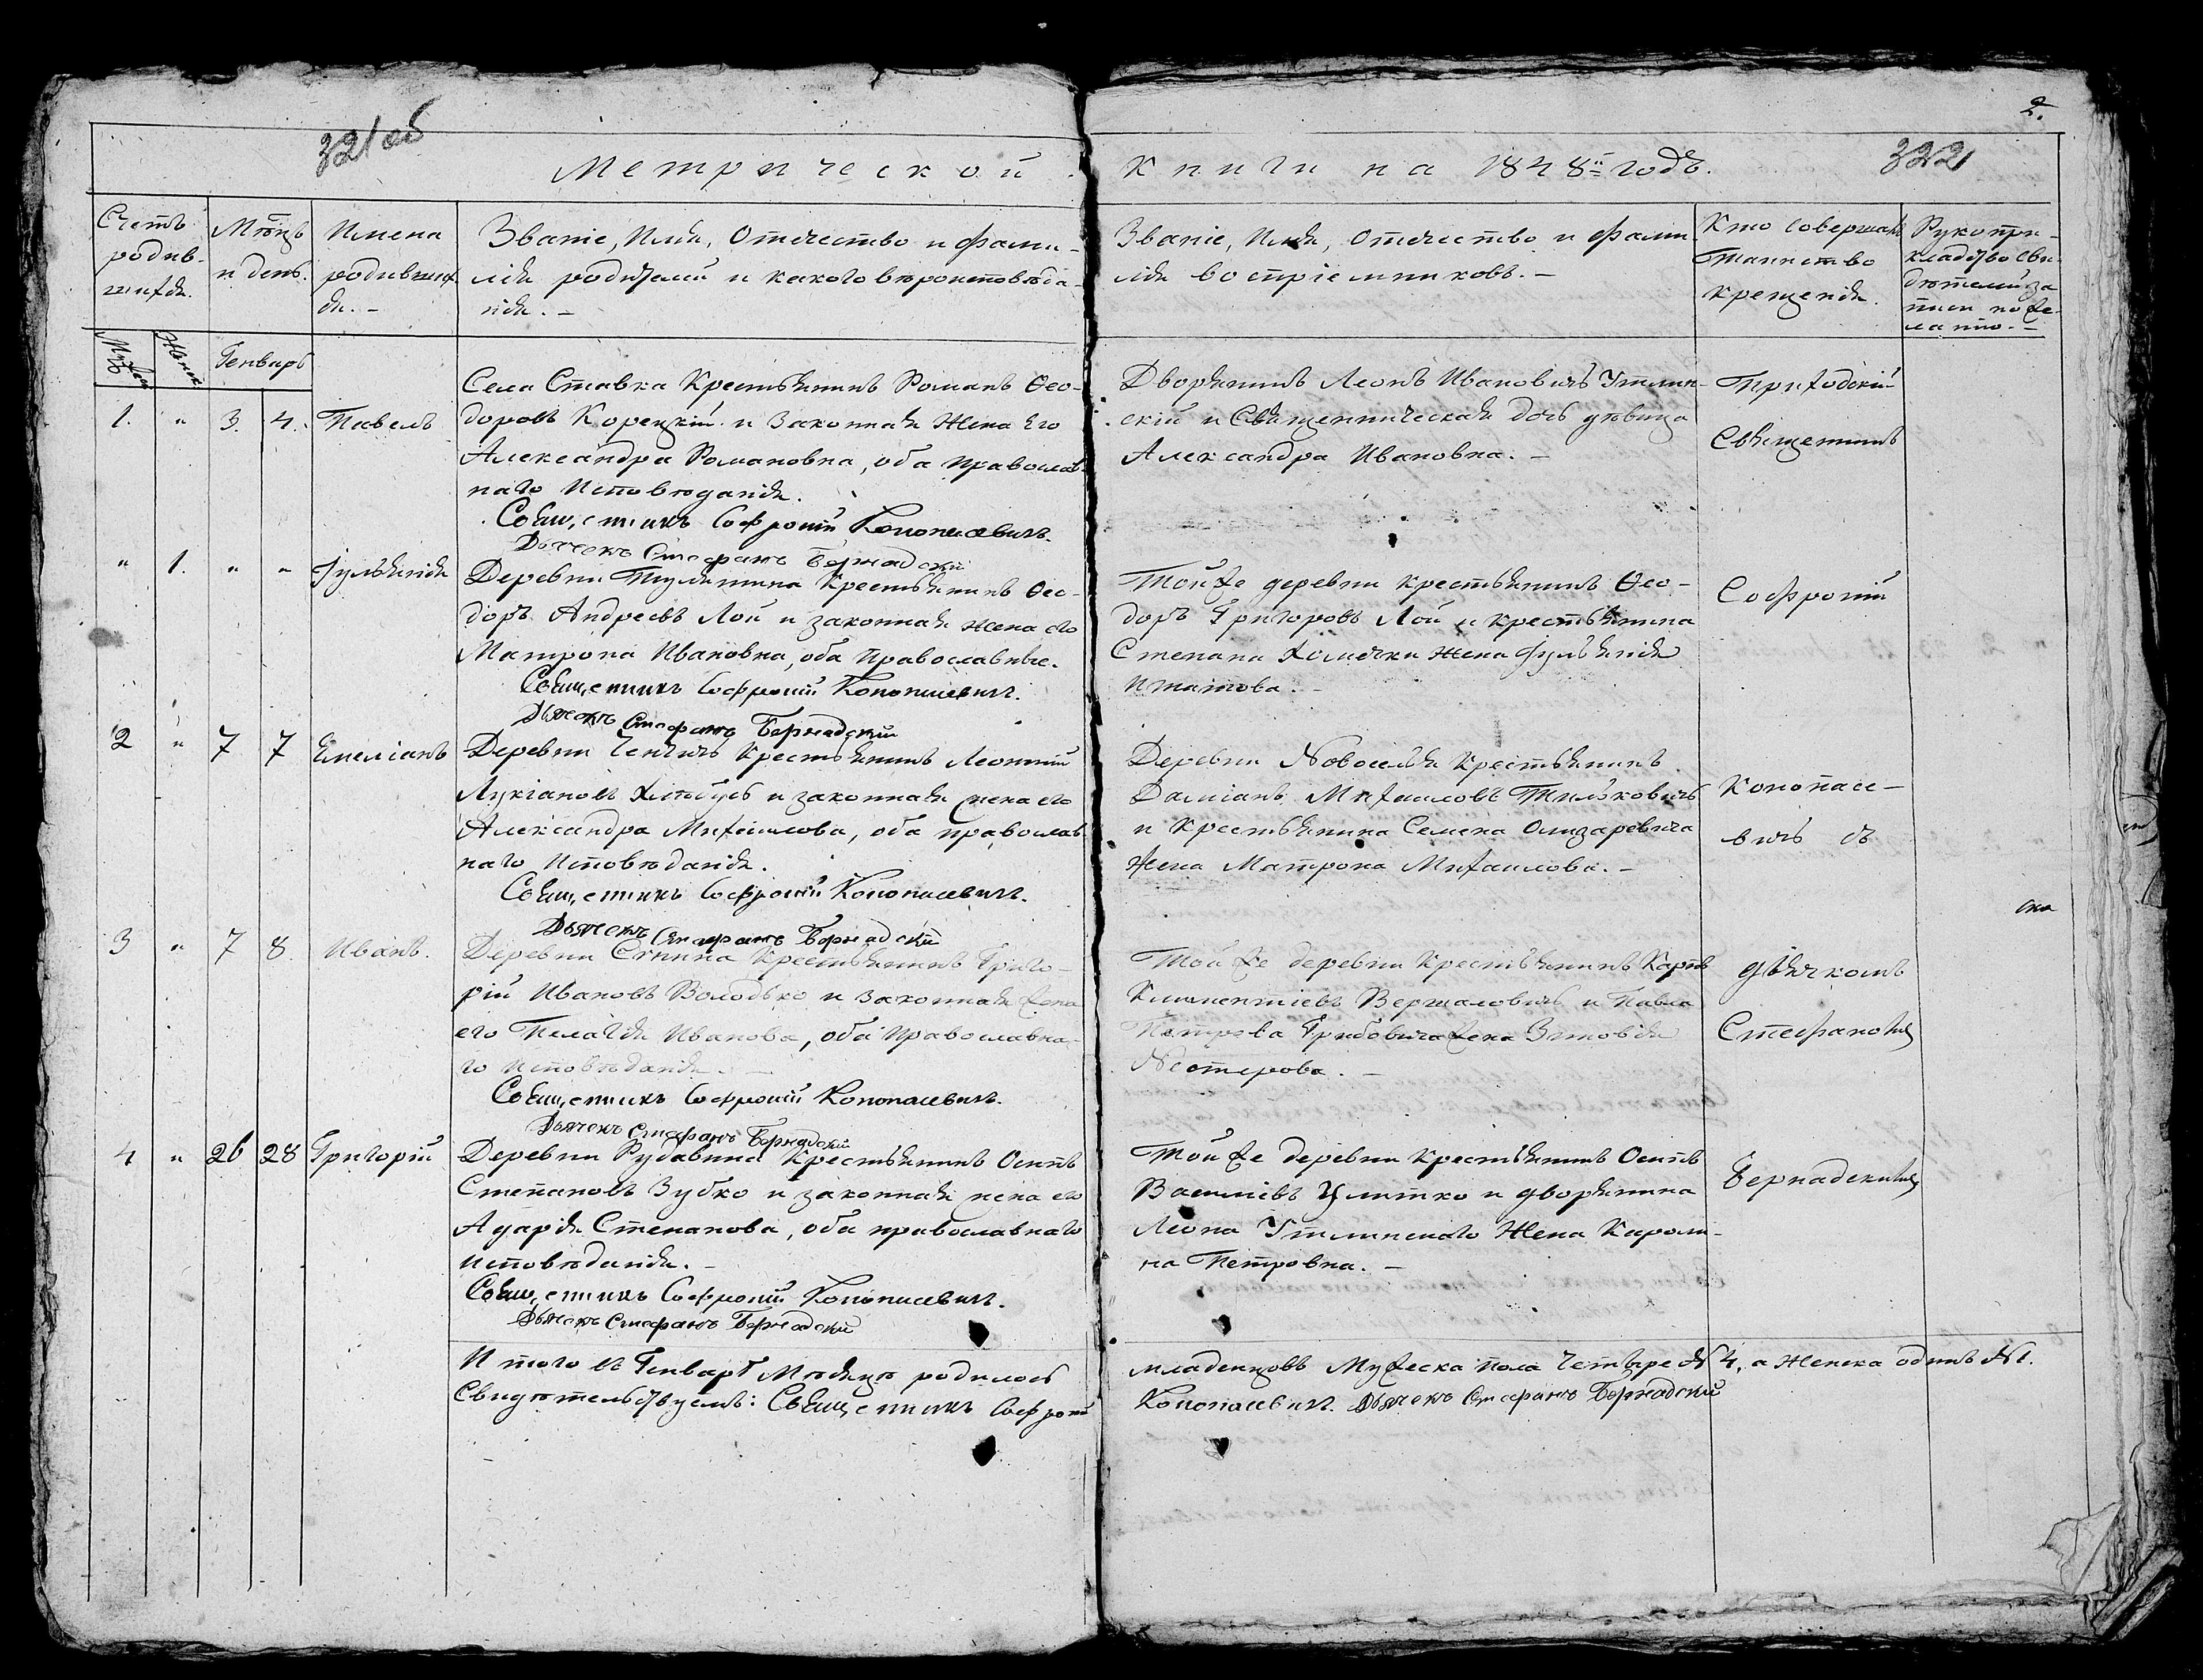 321 об
2.
322
Метрической
Книги на 1848й годъ.
Счетъ родив- шихся.
Мѣсяцъ и день.
Имена родивших- ся. -
Званіе, Имя, Отечество и Фами-
лія родителей и какого вѣроисповѣда-
нія. -
Званіе, Имя, Отечество и Фами-
лія воспріемниковъ. -
Кто совершалъ
Таинство
крещенія.
Рукопри-
кладство сви-
дѣтелей за
писи по же-
ланію. -
Муж.
Женск.
Генварь
1. " 3. 4. Павелъ
Села Ставка Крестьянинъ Романъ Ѳео-
доровъ Корецкій и Законная Жена Его
Александра Романовна, оба православ-
наго Исповѣданія.
Священникъ Софроній Конопасевичъ.
Дьячекъ Стефанъ Бернадскій
Дворянинъ Леонъ Ивановичъ
и Священническая дочь дѣвица
Александра Ивановна. -
Приходскій
Священникъ
" 1. " " Іуліянія
Деревни Крестьянинъ Ѳео-
доръ Андреевъ Лой и законная жена его
Матрона Ивановна, оба Православные.
Священникъ Софроній Конопасевичъ.
Дьячекъ Стефанъ Бернадскій
Той же деревни крестьянинъ Ѳео-
доръ Григоровъ Лой и крестьянина
Степана жена Іуліянія
Игнатова. -
Софроній
2 " 7 7 Емеліанъ
Деревни Крестьянинъ Леонтій
Лукіановъ и законная жена его
Александра Михаилова, оба православ-
наго Исповѣданія.
Священникъ Софроній Конопасевичъ.
Дьячекъ Стефанъ Бернадскій
Деревни Новоселья Крестьянинъ
Даміанъ Михаиловъ
и Крестьянина Семена Олизаревича
Жена Матрона Михаилова. -
Конопасе-
вичъ съ
3 " 7 8. Иванъ.
Деревни Крестьянинъ Григо-
рій Ивановъ Володько и Законная жена
его Пелагія Иванова, оба Православна-
го Исповѣданія. -
Священникъ Софроній Конопасевичъ.
Дьячекъ Стефанъ Бернадскій
Той же деревни Крестьянинъ Карпъ
Климентіевъ и Павла
Петрова Грибовича жена Зиновія
Нестерова. -
дьячкомъ
Стефаномъ
4 " 26 28 Григорій
Деревни Рудавина Крестьянинъ Осипъ
Степановъ Зубко и законная жена его
Адарія Степанова, оба православнаго
исповѣданія. -
Священникъ Софроній Конопасевичъ.
Дьячекъ Стефанъ Бернадскій
Той же деревни Крестьянинъ Осипъ
Василіевъ и дворянина
Леона Жена Кароли-
на Петровна. -
Бернадскимъ
Итого въ Генварѣ Мѣсяцѣ родилось
младенцовъ Мужеска пола четыре № 4, а женска одинъ № 1.
Свидѣтельствуемъ: Священникъ Софроній
Конопасевичъ. Дьячекъ Стефанъ Бернадскій